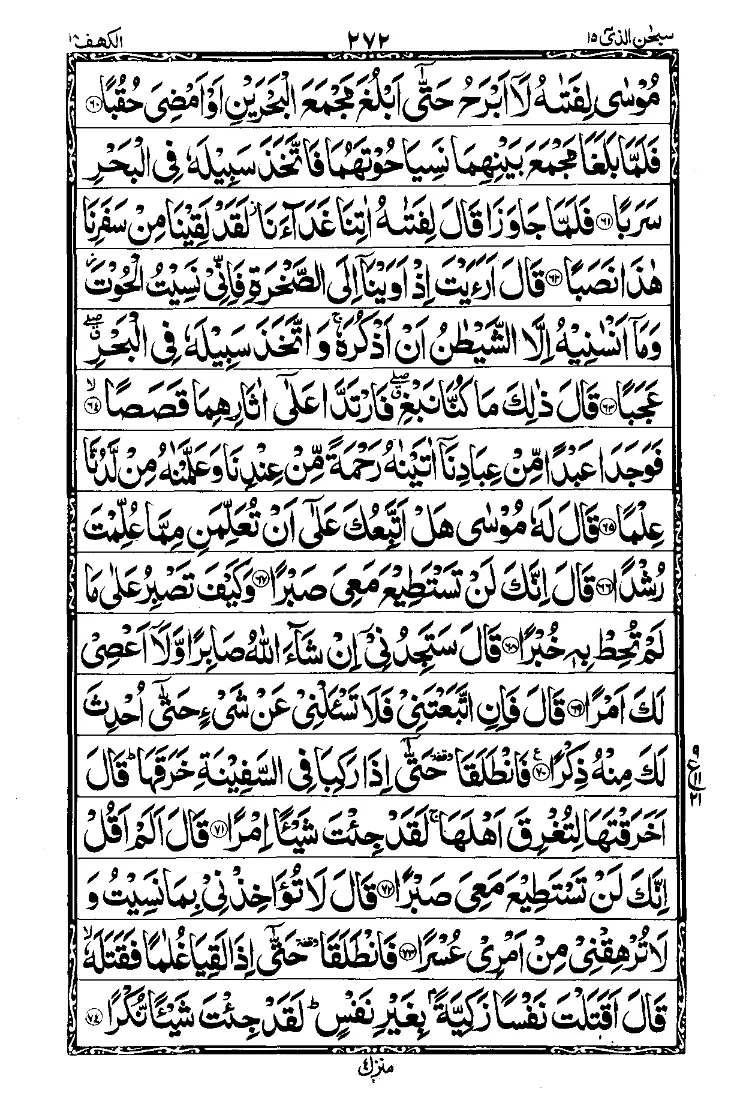 سبحٰن الذیۤ ١٥ ٢٧٢ الكهف ١٨
مُوْسٰى لِفَتٰىهُ لَاۤ اَبْرَحُ حَتّٰۤى اَبْلُغَ مَجْمَعَ الْبَحْرَيْنِ اَوْ اَمْضِيَ حُقُبًا ﴿٦٠﴾
فَلَمَّا بَلَغَا مَجْمَعَ بَيْنِهِمَا نَسِيَا حُوْتَهُمَا فَاتَّخَذَ سَبِيْلَهٗ فِي الْبَحْرِ
سَرَبًا ﴿٦١﴾ فَلَمَّا جَاوَزَا قَالَ لِفَتٰىهُ اٰتِنَا غَدَآءَنَا ؗ لَقَدْ لَقِيْنَا مِنْ سَفَرِنَا
هٰذَا نَصَبًا ﴿٦٢﴾ قَالَ اَرَءَيْتَ اِذْ اَوَيْنَاۤ اِلَى الصَّخْرَةِ فَاِنِّيْ نَسِيْتُ الْحُوْتَ ؗ
وَمَاۤ اَنْسٰىنِيْهُ اِلَّا الشَّيْطٰنُ اَنْ اَذْكُرَهٗ ۚ وَاتَّخَذَ سَبِيْلَهٗ فِي الْبَحْرِ ۖق
عَجَبًا ﴿٦٣﴾ قَالَ ذٰلِكَ مَا كُنَّا نَبْغِ ۖق فَارْتَدَّا عَلٰۤى اٰثَارِهِمَا قَصَصًا ﴿٦٤﴾ ۙ
فَوَجَدَا عَبْدًا مِّنْ عِبَادِنَاۤ اٰتَيْنٰهُ رَحْمَةً مِّنْ عِنْدِنَا وَعَلَّمْنٰهُ مِنْ لَّدُنَّا
عِلْمًا ﴿٦٥﴾ قَالَ لَهٗ مُوْسٰى هَلْ اَتَّبِعُكَ عَلٰۤى اَنْ تُعَلِّمَنِ مِمَّا عُلِّمْتَ
رُشْدًا ﴿٦٦﴾ قَالَ اِنَّكَ لَنْ تَسْتَطِيْعَ مَعِيَ صَبْرًا ﴿٦٧﴾ وَكَيْفَ تَصْبِرُ عَلٰى مَا
لَمْ تُحِطْ بِهٖ خُبْرًا ﴿٦٨﴾ قَالَ سَتَجِدُنِيْۤ اِنْ شَآءَ اللّٰهُ صَابِرًا وَّلَاۤ اَعْصِيْ
لَكَ اَمْرًا ﴿٦٩﴾ قَالَ فَاِنِ اتَّبَعْتَنِيْ فَلَا تَسْـَٔلْنِيْ عَنْ شَيْءٍ حَتّٰۤى اُحْدِثَ
لَكَ مِنْهُ ذِكْرًا ﴿٧٠﴾ ع فَانْطَلَقَا وقفة حَتّٰۤى اِذَا رَكِبَا فِي السَّفِيْنَةِ خَرَقَهَا ؕ قَالَ
اَخَرَقْتَهَا لِتُغْرِقَ اَهْلَهَا ۚ لَقَدْ جِئْتَ شَيْـًٔا اِمْرًا ﴿٧١﴾ قَالَ اَلَمْ اَقُلْ
اِنَّكَ لَنْ تَسْتَطِيْعَ مَعِيَ صَبْرًا ﴿٧٢﴾ قَالَ لَا تُؤَاخِذْنِيْ بِمَا نَسِيْتُ وَ
لَا تُرْهِقْنِيْ مِنْ اَمْرِيْ عُسْرًا ﴿٧٣﴾ فَانْطَلَقَا وقفة حَتّٰۤى اِذَا لَقِيَا غُلٰمًا فَقَتَلَهٗ ۙ
قَالَ اَقَتَلْتَ نَفْسًا زَكِيَّةًۢ بِغَيْرِ نَفْسٍ ؕ لَقَدْ جِئْتَ شَيْـًٔا نُّكْرًا ﴿٧٤﴾
٩
ع ١١
٢١
منزل ٤